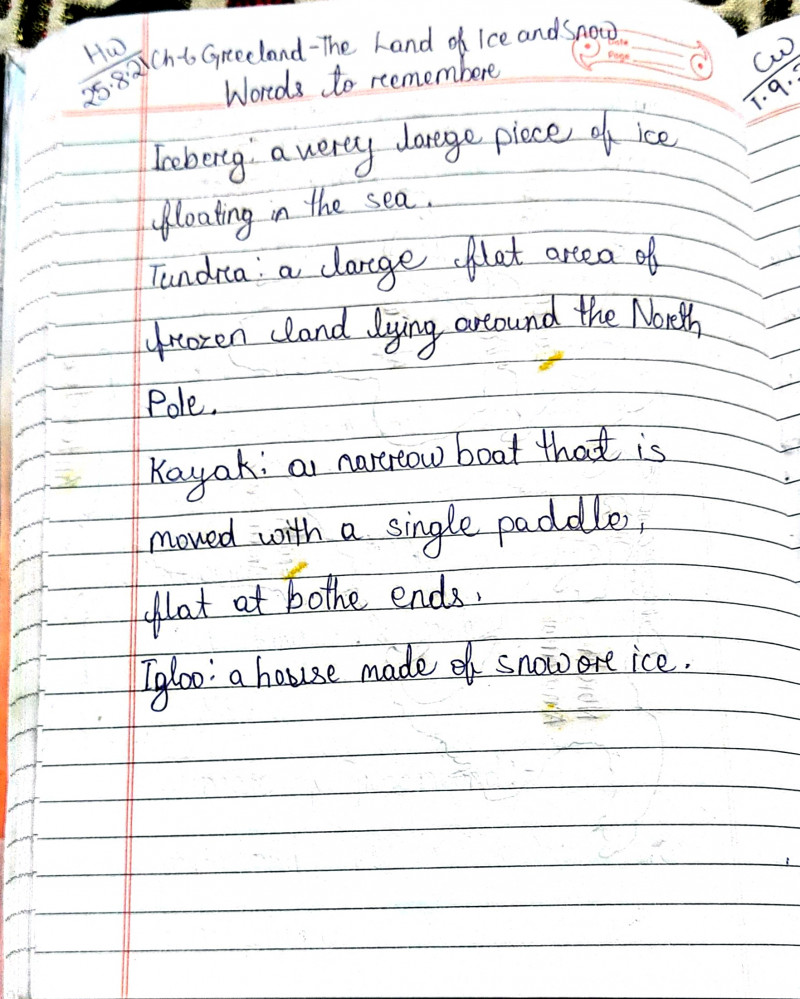 HW
25.8.21
Ch-6 Greeland-The Land of Ice and Snow
Date
Page
Words to remembere
CW
1.9.
Iceberg: a very large piece of ice
floating in the sea.
Tundra: a large flat area of
frozen land lying around the North
Pole.
Kayak: a narrow boat that is
moved with a single paddle,
flat at bothe ends.
Igloo: a house made of snow or ice.